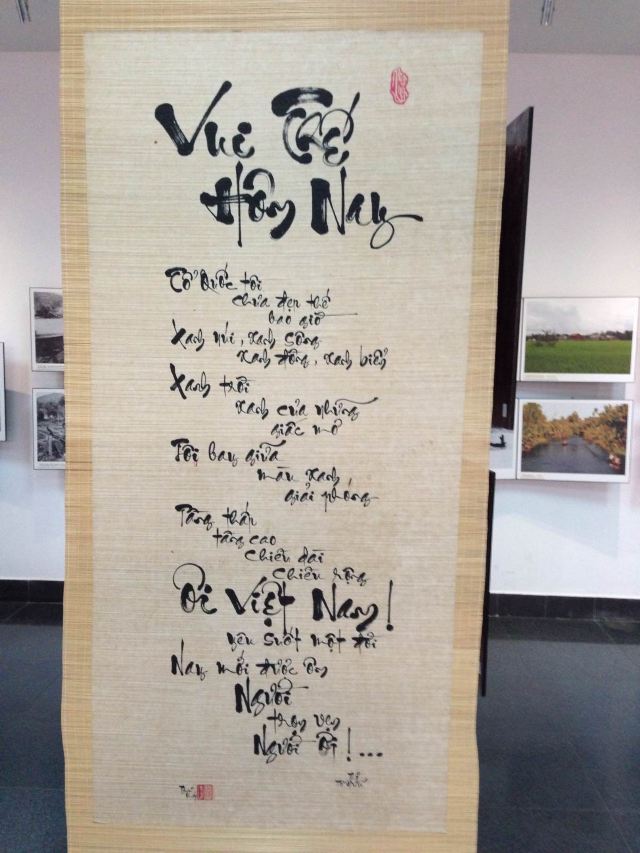 Vui Thế
Hôm Nay
Tổ Quốc tôi
chưa đẹp thế
bao giờ
Xanh núi, xanh sông
xanh đồng, xanh biển
Xanh trời
xanh của những
giấc mơ
Tôi bay giữa
màu xanh
giải phóng
Tầng thấp
tầng cao
Chiều dài
Chiều rộng
Ôi Việt Nam!
yêu suốt một đời
Nay mới được ôm
Người
trọn vẹn
Người ơi!...